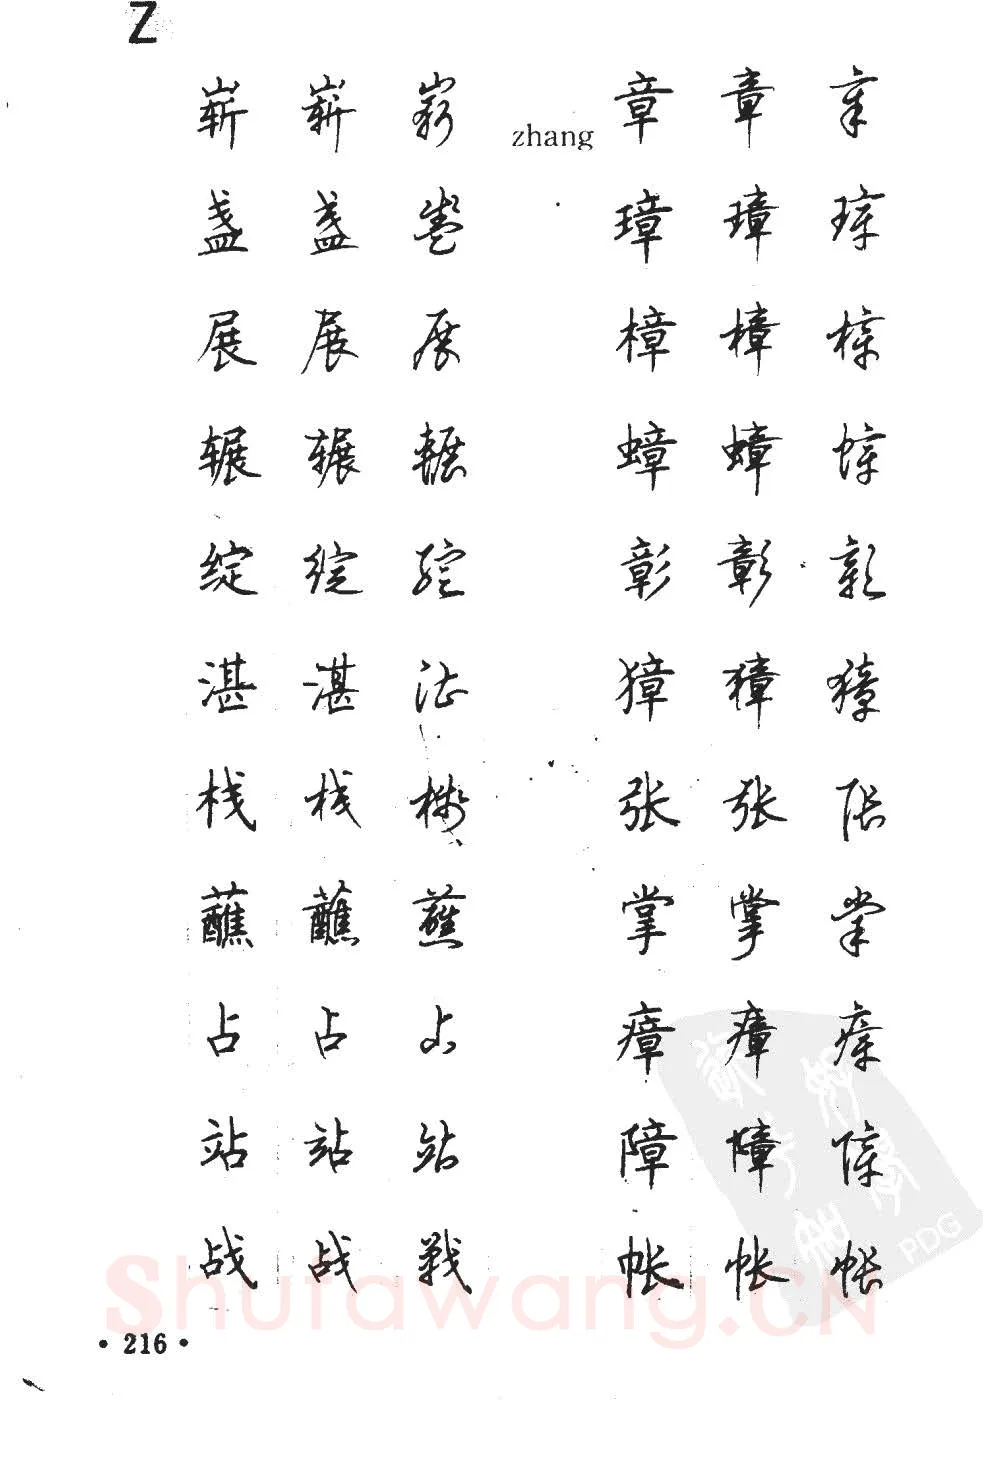 Z
崭 崭 崭
盏 盏 盏
展 展 展
辗 辗 辗
绽 绽 绽
湛 湛 湛
栈 栈 栈
蘸 蘸 蘸
占 占 占
站 站 站
战 战 戰
zhang
章 章 章
璋 璋 璋
樟 樟 樟
蟑 蟑 蟑
彰 彰 彰
獐 獐 獐
张 张 张
掌 掌 掌
瘴 瘴 瘴
障 障 障
帐 帐 帐
PDG
Shufawang.CN
·216·